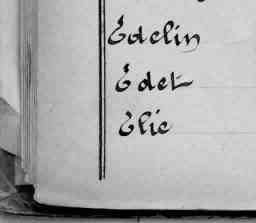 Edelin
Edet
Elie